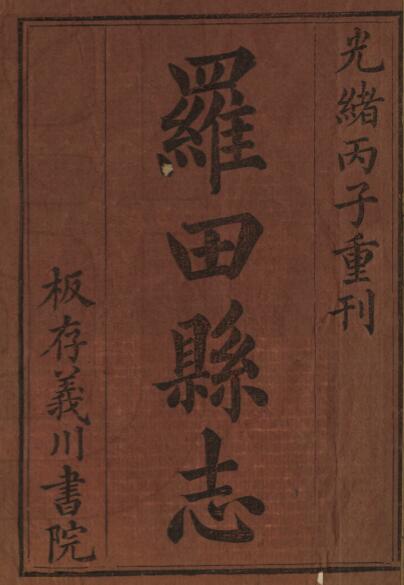 光緒丙子重刊
羅田縣志
板存義川書院